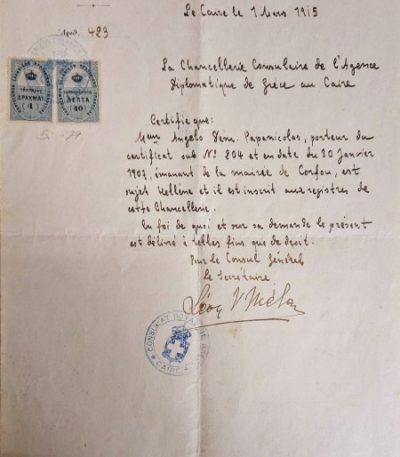 Le Caire le 1 Mars 1915
Αριθ. 423
La Chancellerie Consulaire de l'Agence
Diplomatique de Grèce au Caire
ΔΡΑΧΜΑΙ
1
ΛΕΠΤΑ
40
Certifie que:
Angelo Dem. Papanicolas, porteur du
certificat sub Nº 804 et en date du 30 Janvier
1907, émanant de la mairie de Corfou, est
sujet Hellène et il est inscrit aux registres de
cette Chancellerie.
En foi de quoi et sur sa demande le présent
est délivré à telles fins que de droit.
Pour le Consul Général
Le Secrétaire
CONSULAT ROYAL DE
CAIRE